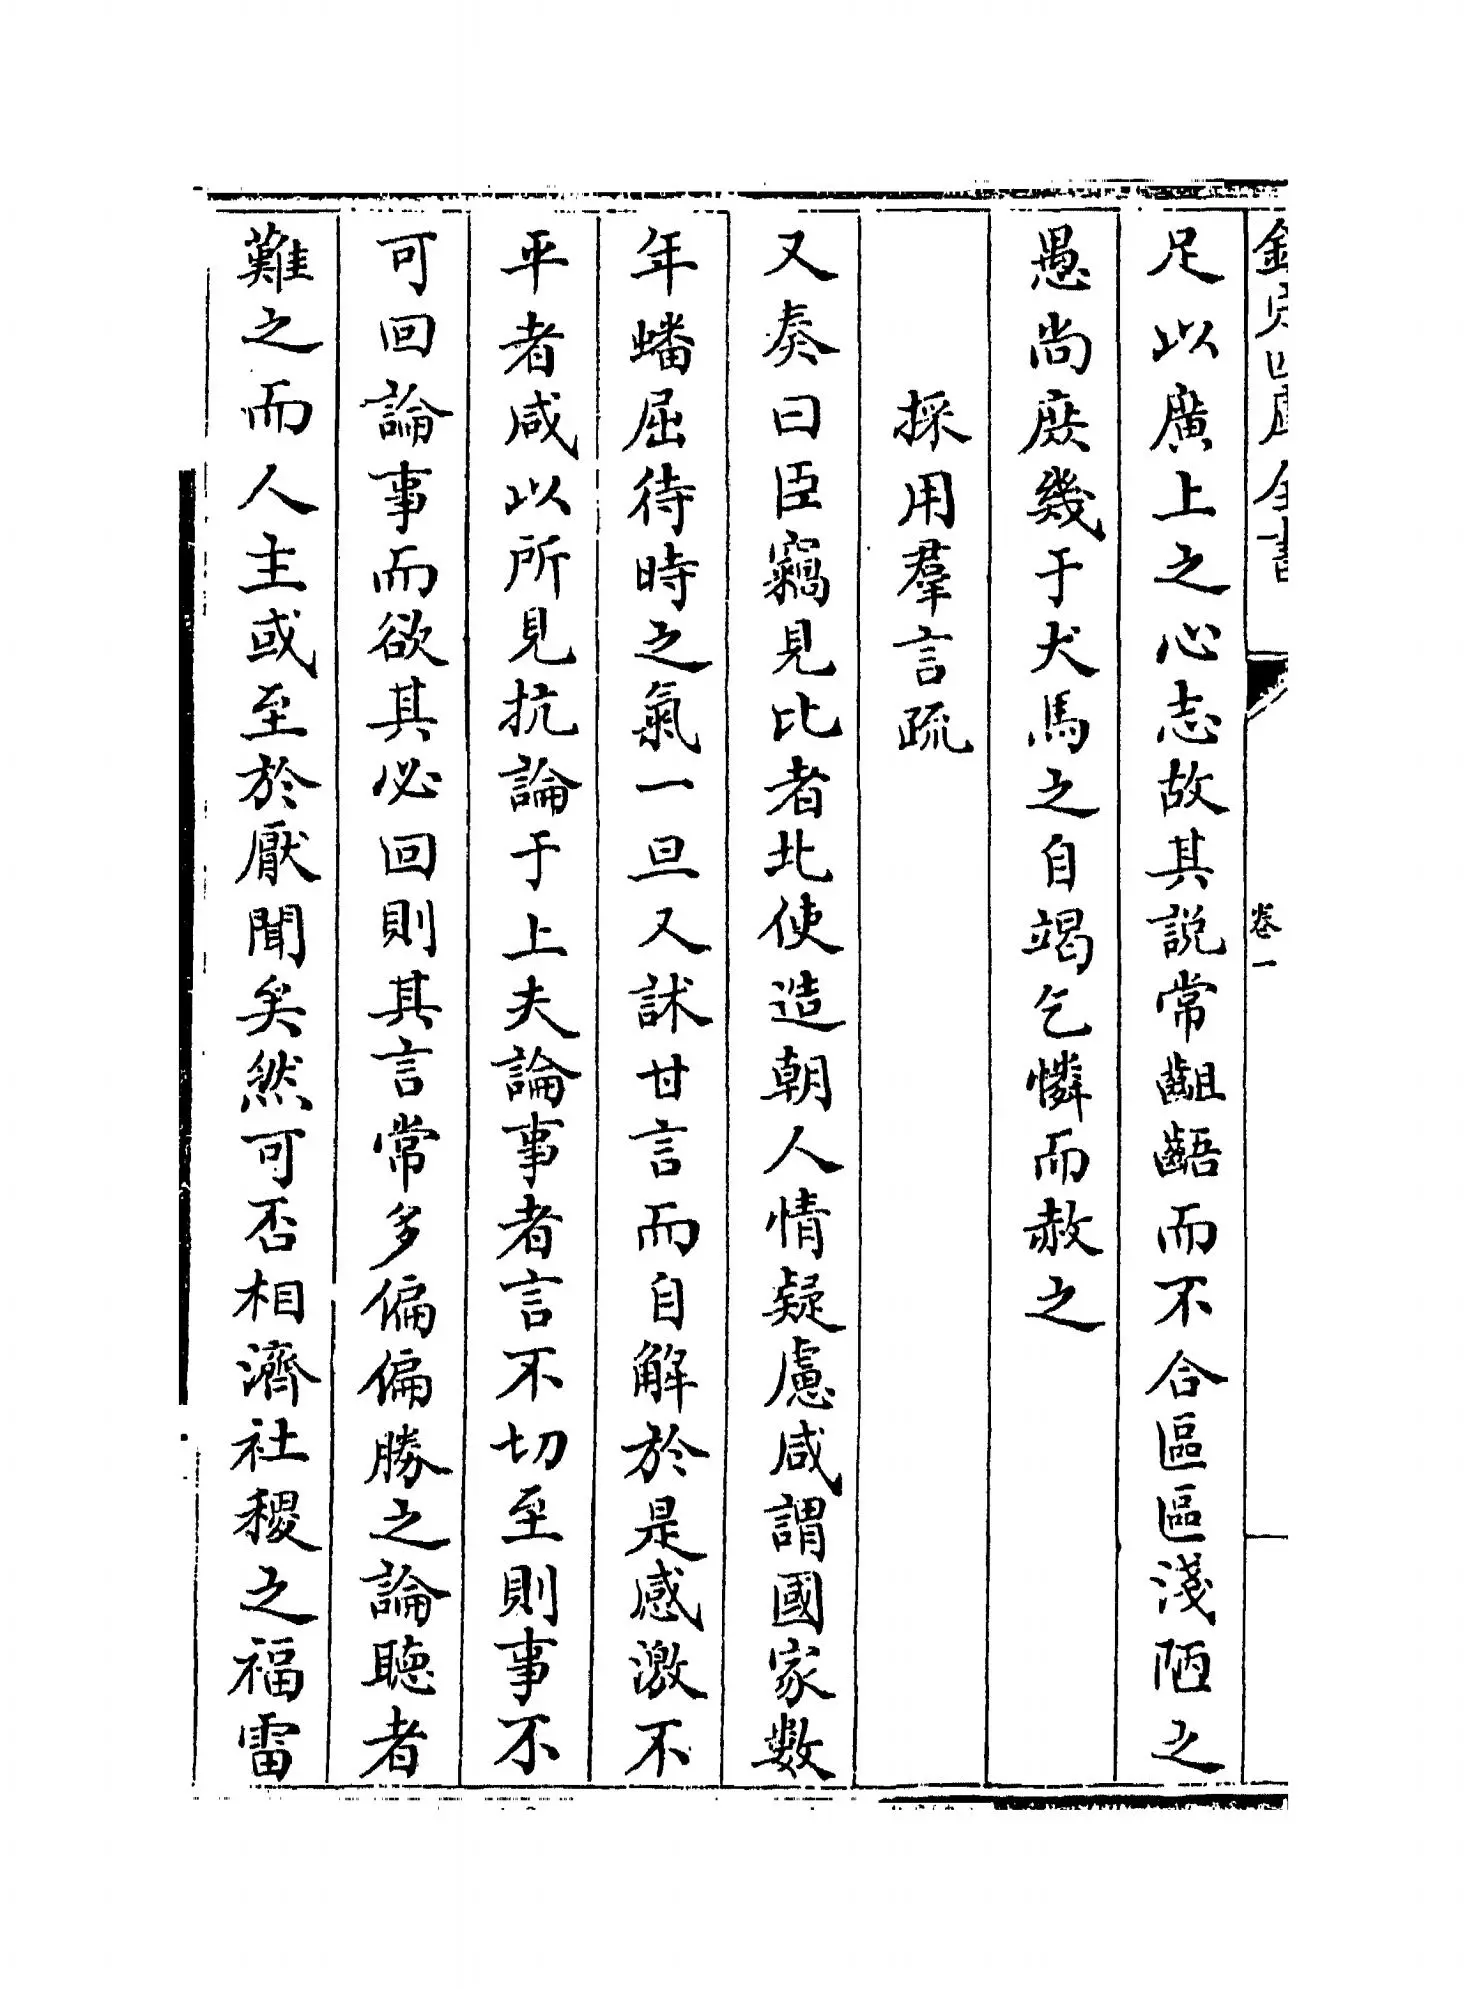 欽定四庫全書
卷一
足以廣上之心志故其説常齟齬而不合區區淺陋之
愚尚庶幾于犬馬之自竭乞憐而赦之
採用羣言疏
又奏曰臣竊見比者北使造朝人情疑慮咸謂國家數
年蟠屈待時之氣一旦又訹甘言而自解於是感激不
平者咸以所見抗論于上夫論事者言不切至則事不
可回論事而欲其必回則其言常多偏偏勝之論聽者
難之而人主或至於厭聞矣然可否相濟社稷之福雷